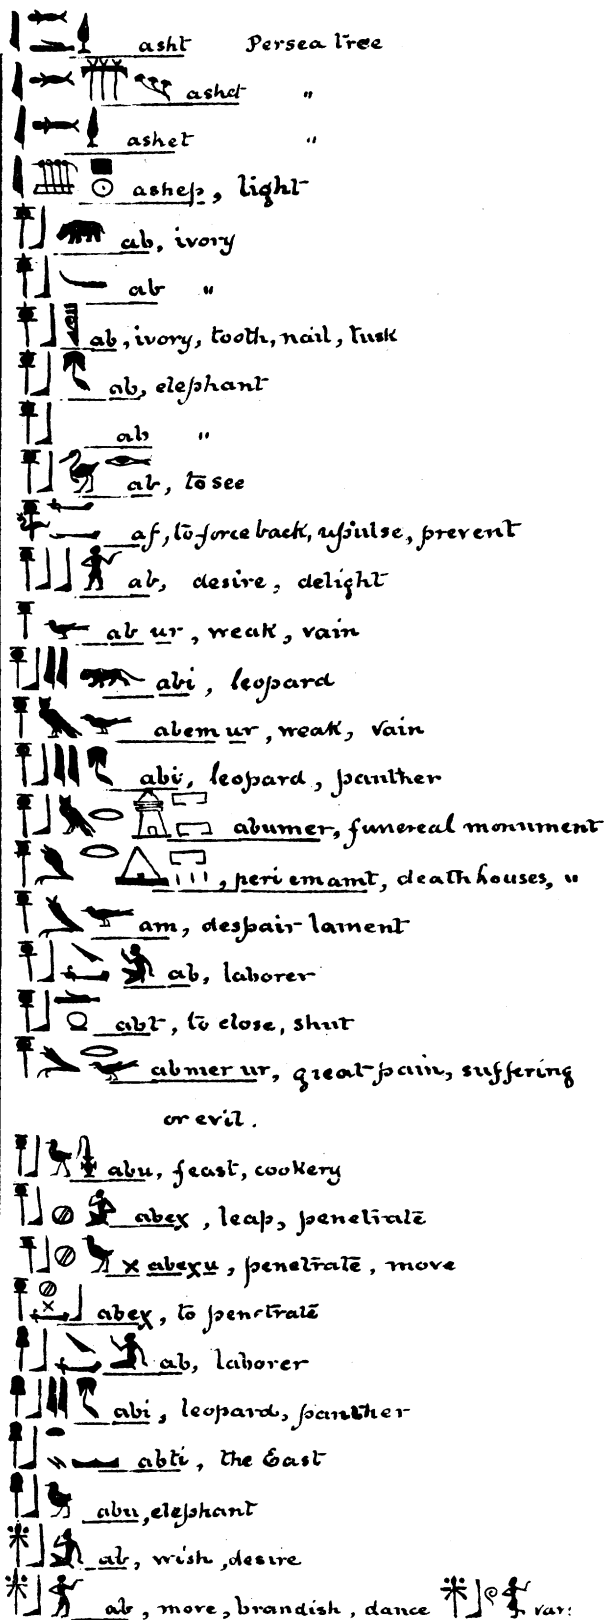 asht Persea tree
ashd "
ashet "
ashep, light
ab, ivory
ab "
ab, ivory, tooth, nail, tusk
ab, elephant
ab "
ab, to see
af, to force back, repulse, prevent
ab, desire, delight
ab ur, weak, vain
abi, leopard
abem ur, weak, vain
abi, leopard, panther
abumer, funereal monument
, peri emamt, death houses, "
am, despair lament
ab, laborer
abt, to close, shut
abmer ur, great pain, suffering
or evil.
abu, feast, cookery
abex, leap, penetrate
x abexu, penetrate, move
abex, to penetrate
ab, laborer
abi, leopard, panther
abti, the East
abu, elephant
ab, wish, desire
ab, move, brandish, dance var: